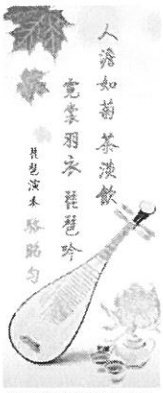 人澹如菊 茶淡飲
霓裳羽衣 琵琶吟
琵琶演奏 駱昭勻